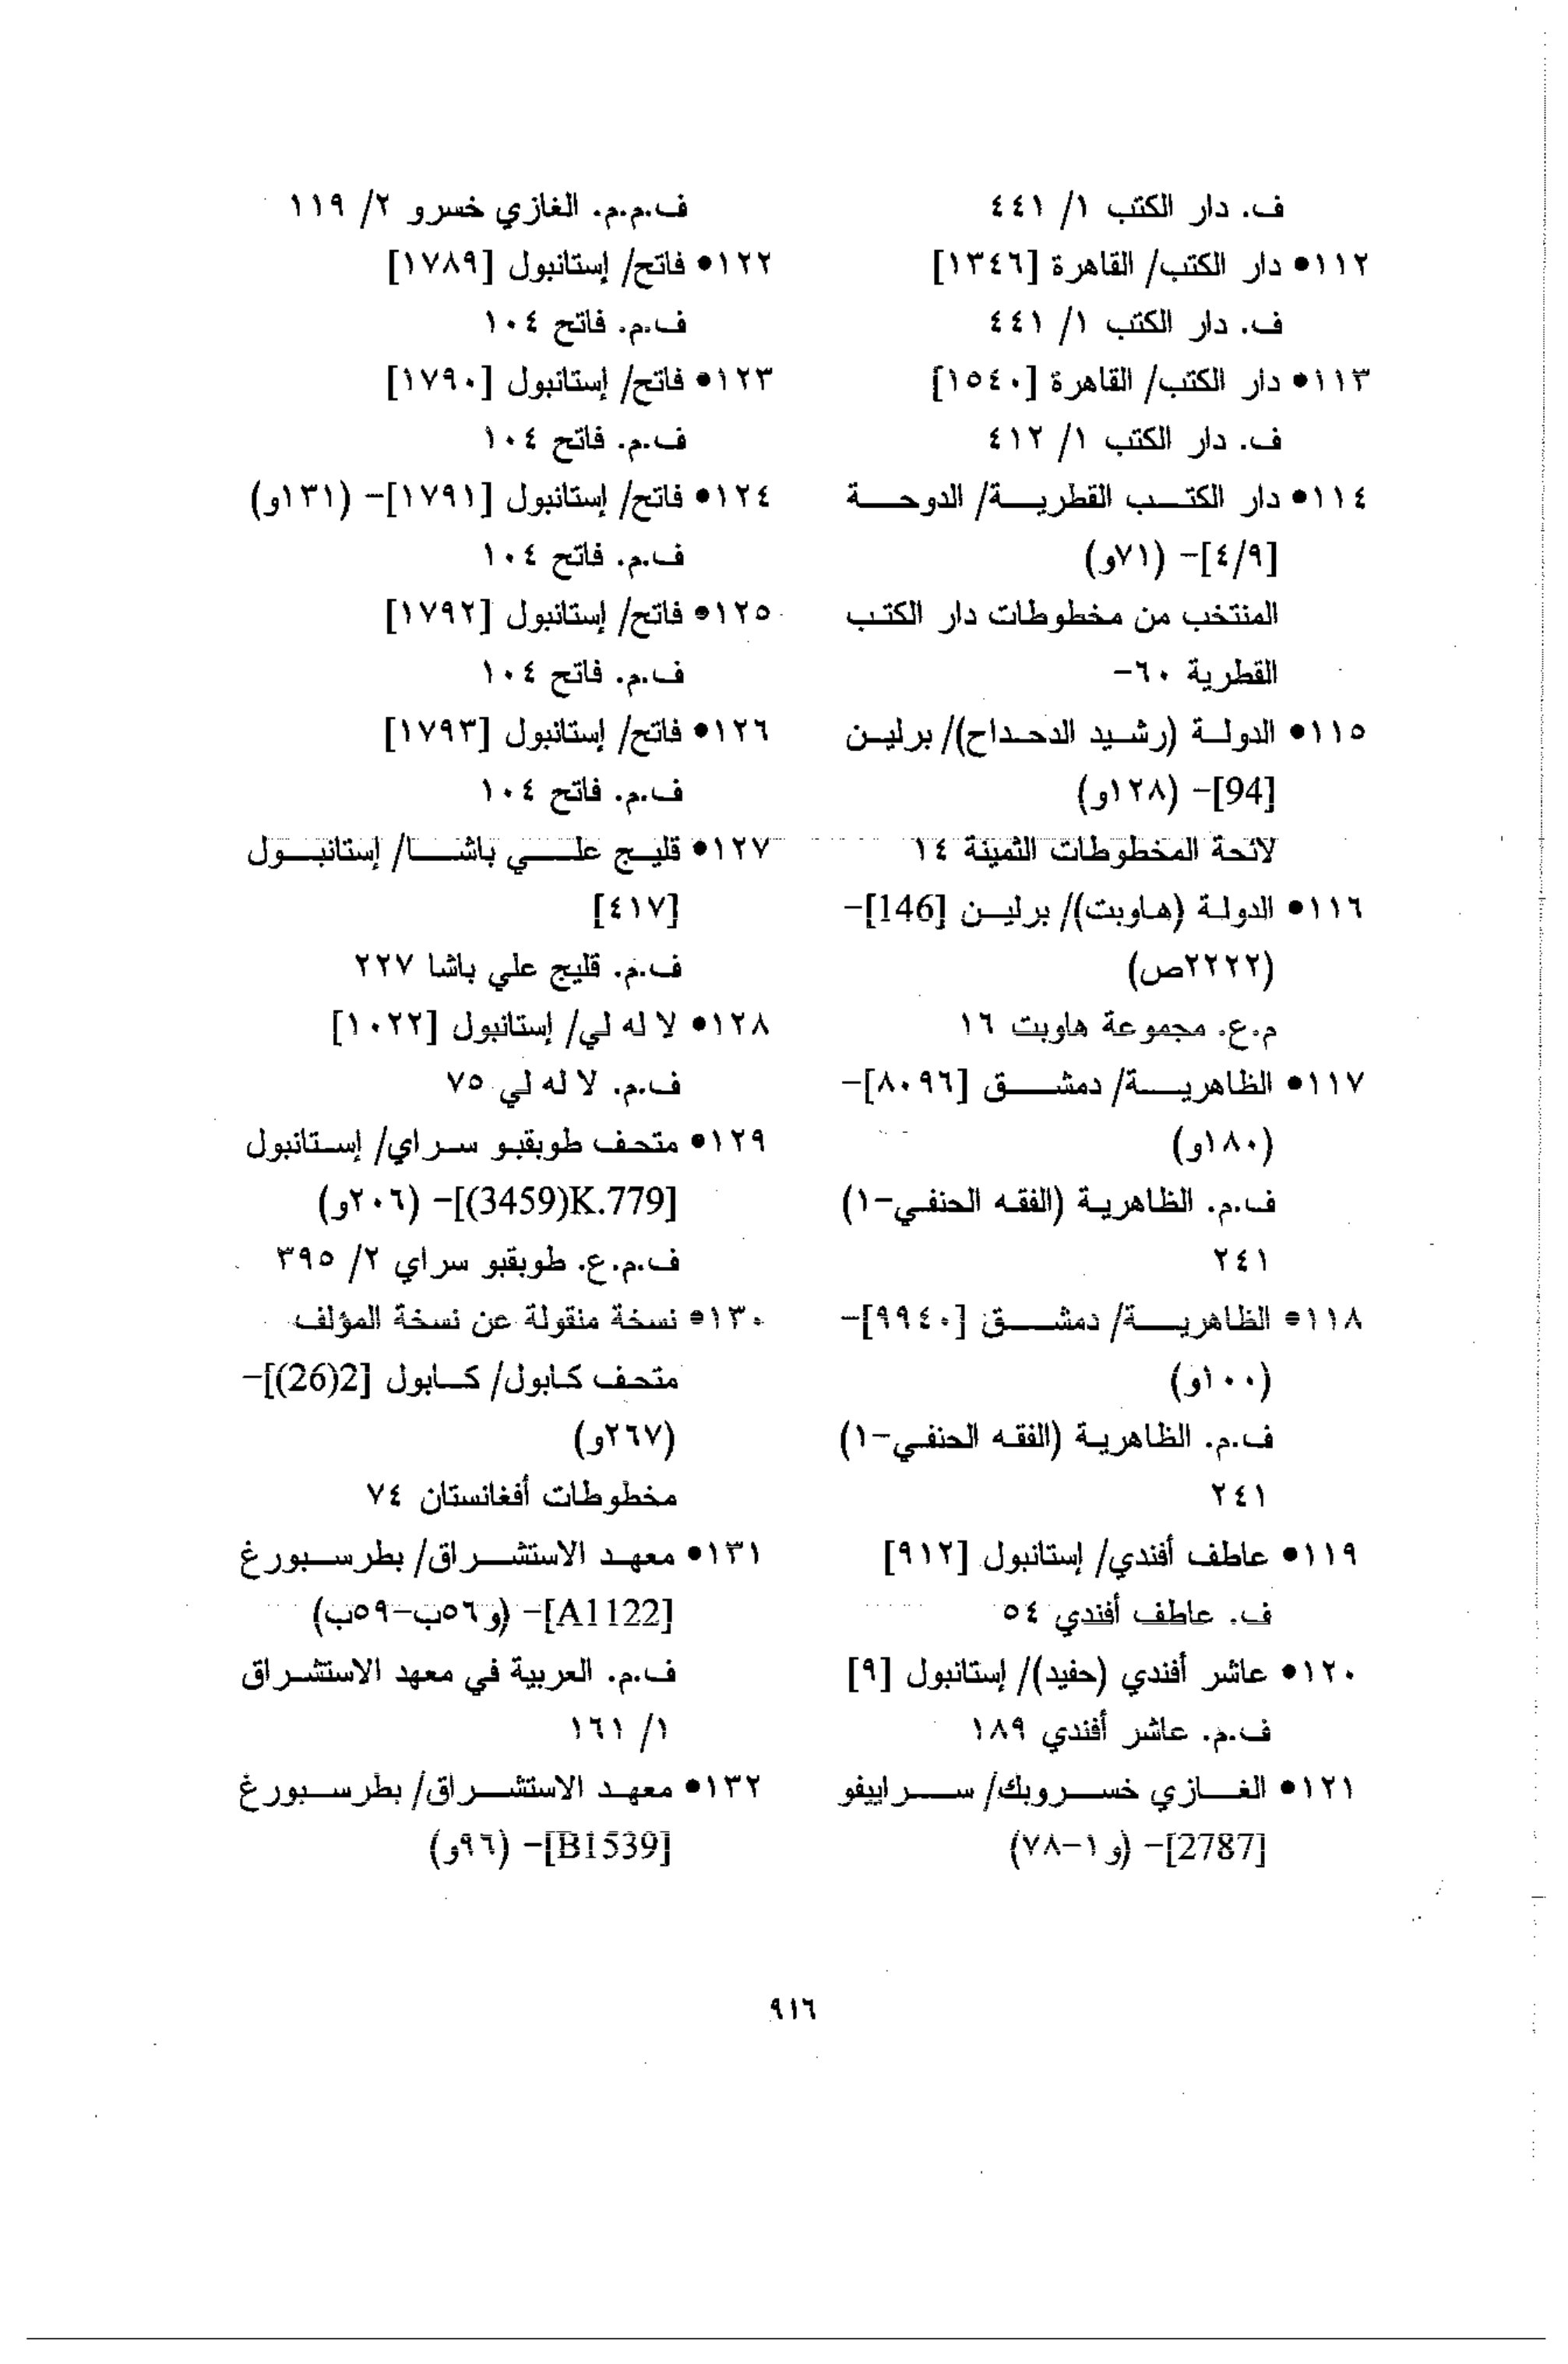 ف. دار الكتب ١/ ٤٤١
١١٢● دار الكتب/ القاهرة [١٣٤٦]
ف. دار الكتب ١/ ٤٤١
١١٣● دار الكتب/ القاهرة [١٥٤٠]
ف. دار الكتب ١/ ٤١٢
١١٤● دار الكتب القطرية/ الدوحة
[٤/٩]- (٧١و)
المنتخب من مخطوطات دار الكتب
القطرية ٦٠-
١١٥● الدولة (رشيد الدحداح)/ برلين
[94]- (١٢٨و)
لائحة المخطوطات الثمينة ١٤
١١٦● الدولة (هاوبت)/ برلين [146]-
(٢٢٢٢ص)
م.ع. مجموعة هاوبت ١٦
١١٧● الظاهرية/ دمشق [٨٠٩٦]-
(١٨٠و)
ف.م. الظاهرية (الفقه الحنفي-١)
٢٤١
١١٨● الظاهرية/ دمشق [٩٩٤٠]-
(١٠٠و)
ف.م. الظاهرية (الفقه الحنفي-١)
٢٤١
١١٩● عاطف أفندي/ إستانبول [٩١٢]
ف. عاطف أفندي ٥٤
١٢٠● عاشر أفندي (حفيد)/ إستانبول [٩]
ف.م. عاشر أفندي ١٨٩
١٢١● الغازي خسروبك/ سراييفو
[2787]- (و١-٧٨)
ف.م.م. الغازي خسرو ٢/ ١١٩
١٢٢● فاتح/ إستانبول [١٧٨٩]
ف.م. فاتح ١٠٤
١٢٣● فاتح/ إستانبول [١٧٩٠]
ف.م. فاتح ١٠٤
١٢٤● فاتح/ إستانبول [١٧٩١]- (١٣١و)
ف.م. فاتح ١٠٤
١٢٥● فاتح/ إستانبول [١٧٩٢]
ف.م. فاتح ١٠٤
١٢٦● فاتح/ إستانبول [١٧٩٣]
ف.م. فاتح ١٠٤
١٢٧● قليج علي باشا/ إستانبول
[٤١٧]
ف.م. قليج علي باشا ٢٢٧
١٢٨● لا له لي/ إستانبول [١٠٢٢]
ف.م. لا له لي ٧٥
١٢٩● متحف طوبقبو سراي/ إستانبول
[3459)K.779)]- (٢٠٦و)
ف.م.ع. طوبقبو سراي ٢/ ٣٩٥
١٣٠● نسخة منقولة عن نسخة المؤلف
متحف كابول/ كابول [2(26)]-
(٢٦٧و)
مخطوطات أفغانستان ٧٤
١٣١● معهد الاستشراق/ بطرسبورغ
[A1122]- (و٥٦ب-٥٩ب)
ف.م. العربية في معهد الاستشراق
١/ ١٦١
١٣٢● معهد الاستشراق/ بطرسبورغ
[B1539]- (٩٦و)
٩١٦